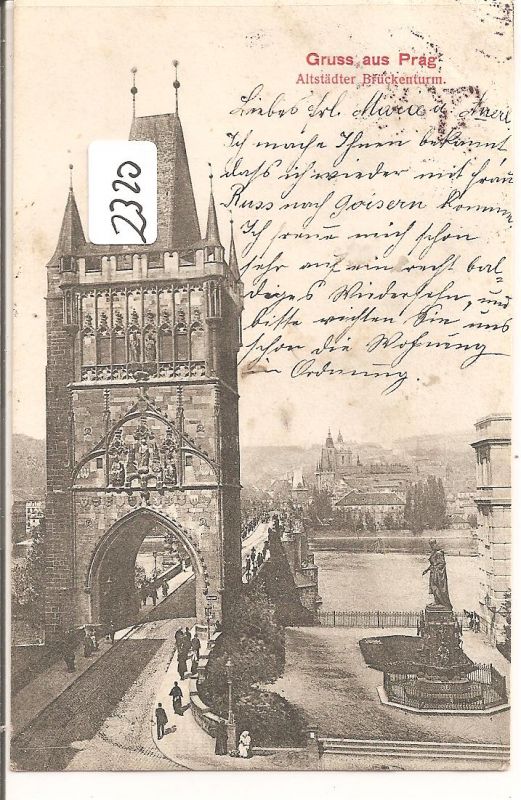 Gruss aus Prag
Altstädter Brückenturm.
2320
Liebes Frl. Marie
Ich mache Ihnen bekannt
dass ich wieder mit Frau
Russ nach Goisern komme.
Ich freue mich schon
sehr auf ein recht bal-
diges Wiedersehn, und
bitte richten Sie uns
schon die Wohnung
in Ordnung.